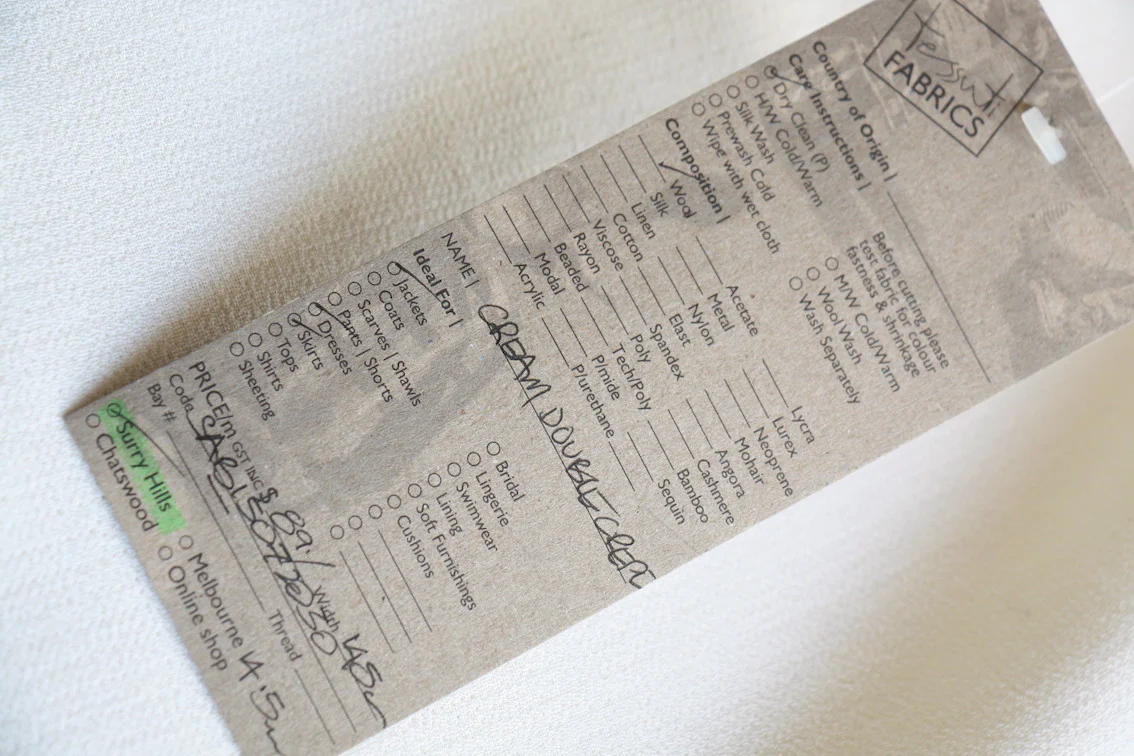 Tessuti
FABRICS
Country of Origin |
Care Instructions |
Dry Clean (P)
H/W Cold/Warm
Silk Wash
Prewash Cold
Wipe with wet cloth
Before cutting please
test fabric for colour
fastness & shrinkage
M/W Cold/Warm
Wool Wash
Wash Separately
Composition |
Wool
Silk
Linen
Cotton
Viscose
Rayon
Beaded
Modal
Acrylic
Acetate
Metal
Nylon
Elast
Spandex
Poly
Tech/Poly
P/mide
P/urethane
Lycra
Lurex
Neoprene
Mohair
Angora
Cashmere
Bamboo
Sequin
NAME | CREAM DOUBLE CREPE
Ideal For |
Jackets
Coats
Scarves | Shawls
Pants | Shorts
Dresses
Skirts
Tops
Shirts
Sheeting
Bridal
Lingerie
Swimwear
Lining
Soft Furnishings
Cushions
PRICE/m GST INC $ 89/ Width
Code
Bay # Thread
Surry Hills
Chatswood
Melbourne
Online shop
4.5m